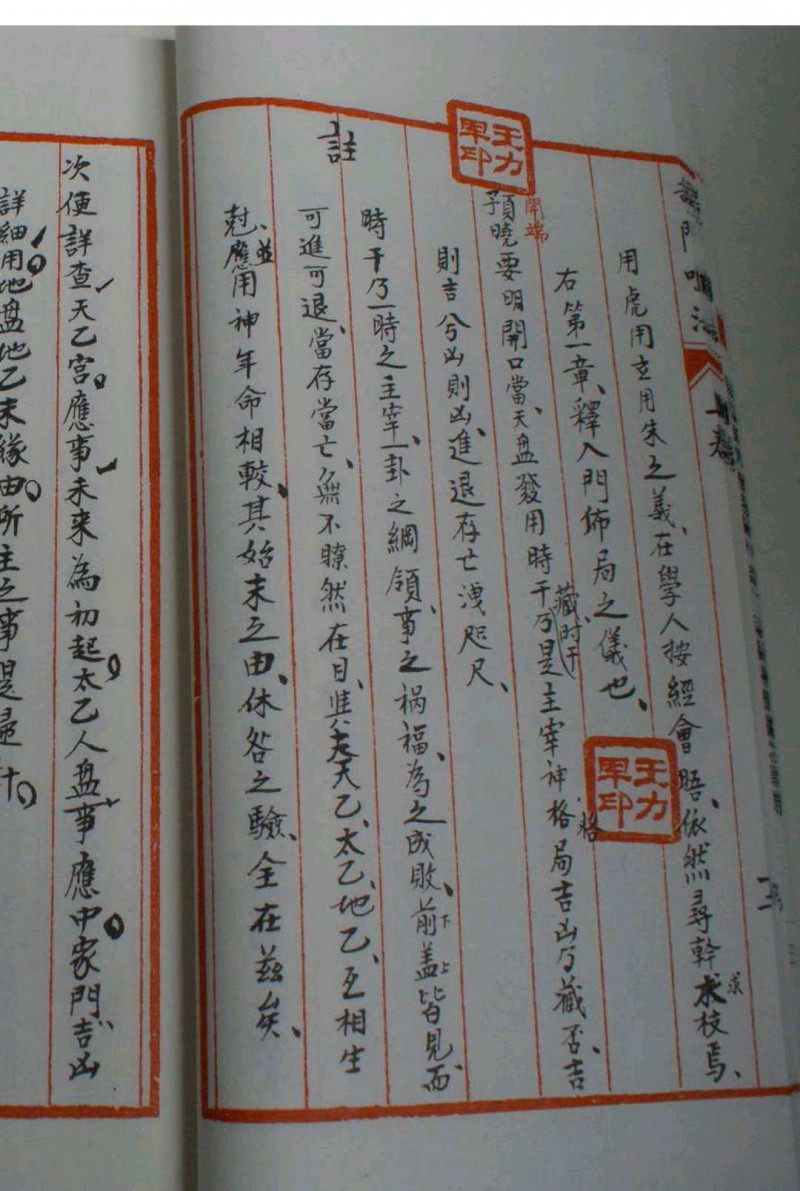 用虎用玄用朱之義、在學人按經會晤、依然尋幹求枝焉、
求
右第一章、釋入門佈局之儀也、
開端
預曉要明開口當、天盘發用時干乃是主宰神格局吉凶兮藏否、吉
藏时干
格
則吉兮凶則凶、進退存亡洩咫尺、
註
時干乃一時之主宰、一卦之綱領、事之禍福、為之成敗、前盖皆見、而
下
上
可進可退、當存當亡、無不瞭然在目、其天乙、太乙、地乙、互相生
尅、應用神年命相較、其始末之由、休咎之驗、全在茲矣、
並
王力军印
王力军印
次便詳查天乙宮。應事未来為初起。太乙人盘事應中。家門吉凶
詳細用。地盘地乙末緣由。所主之事是